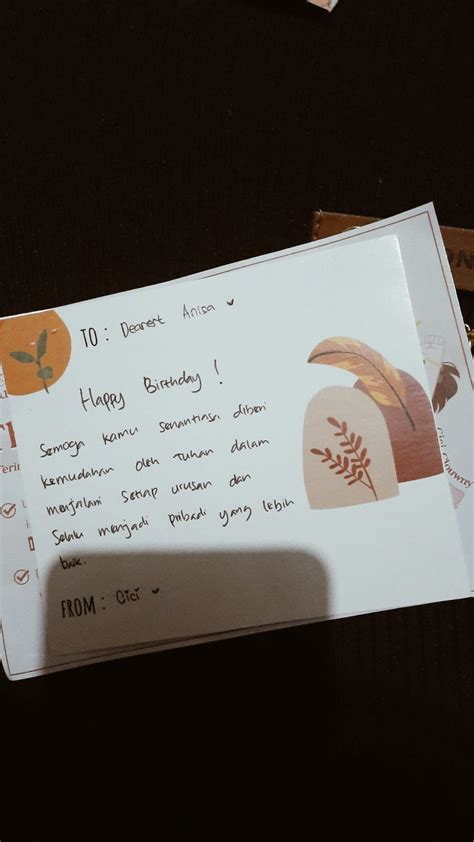 TO : Dearest Anisa
Happy Birthday !
Semoga kamu senantiasa diberi
kemudahan oleh Tuhan dalam
menjalani setiap urusan dan
Selalu menjadi pribadi yang lebih
baik.
FROM : Cici